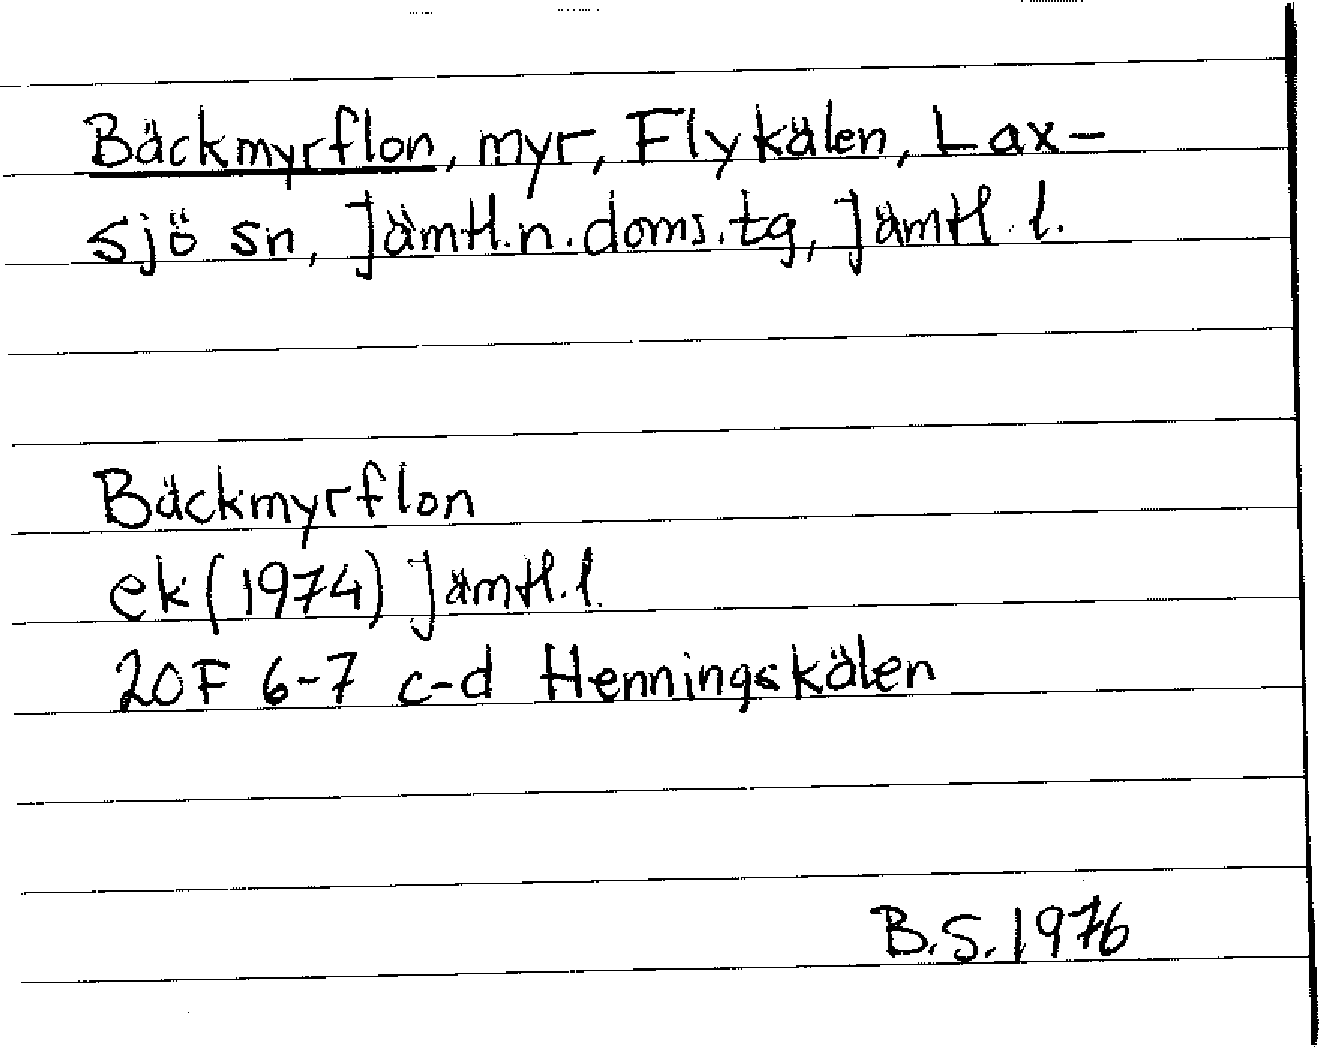 Bäckmyrflon, myr, Flykälen, Lax-
sjö sn, Jämtl.n.doms.tg, Jämtl.l.
Bäckmyrflon
ek (1974) Jämtl.l.
20F 6-7 c-d Henningskälen
B.S. 1976